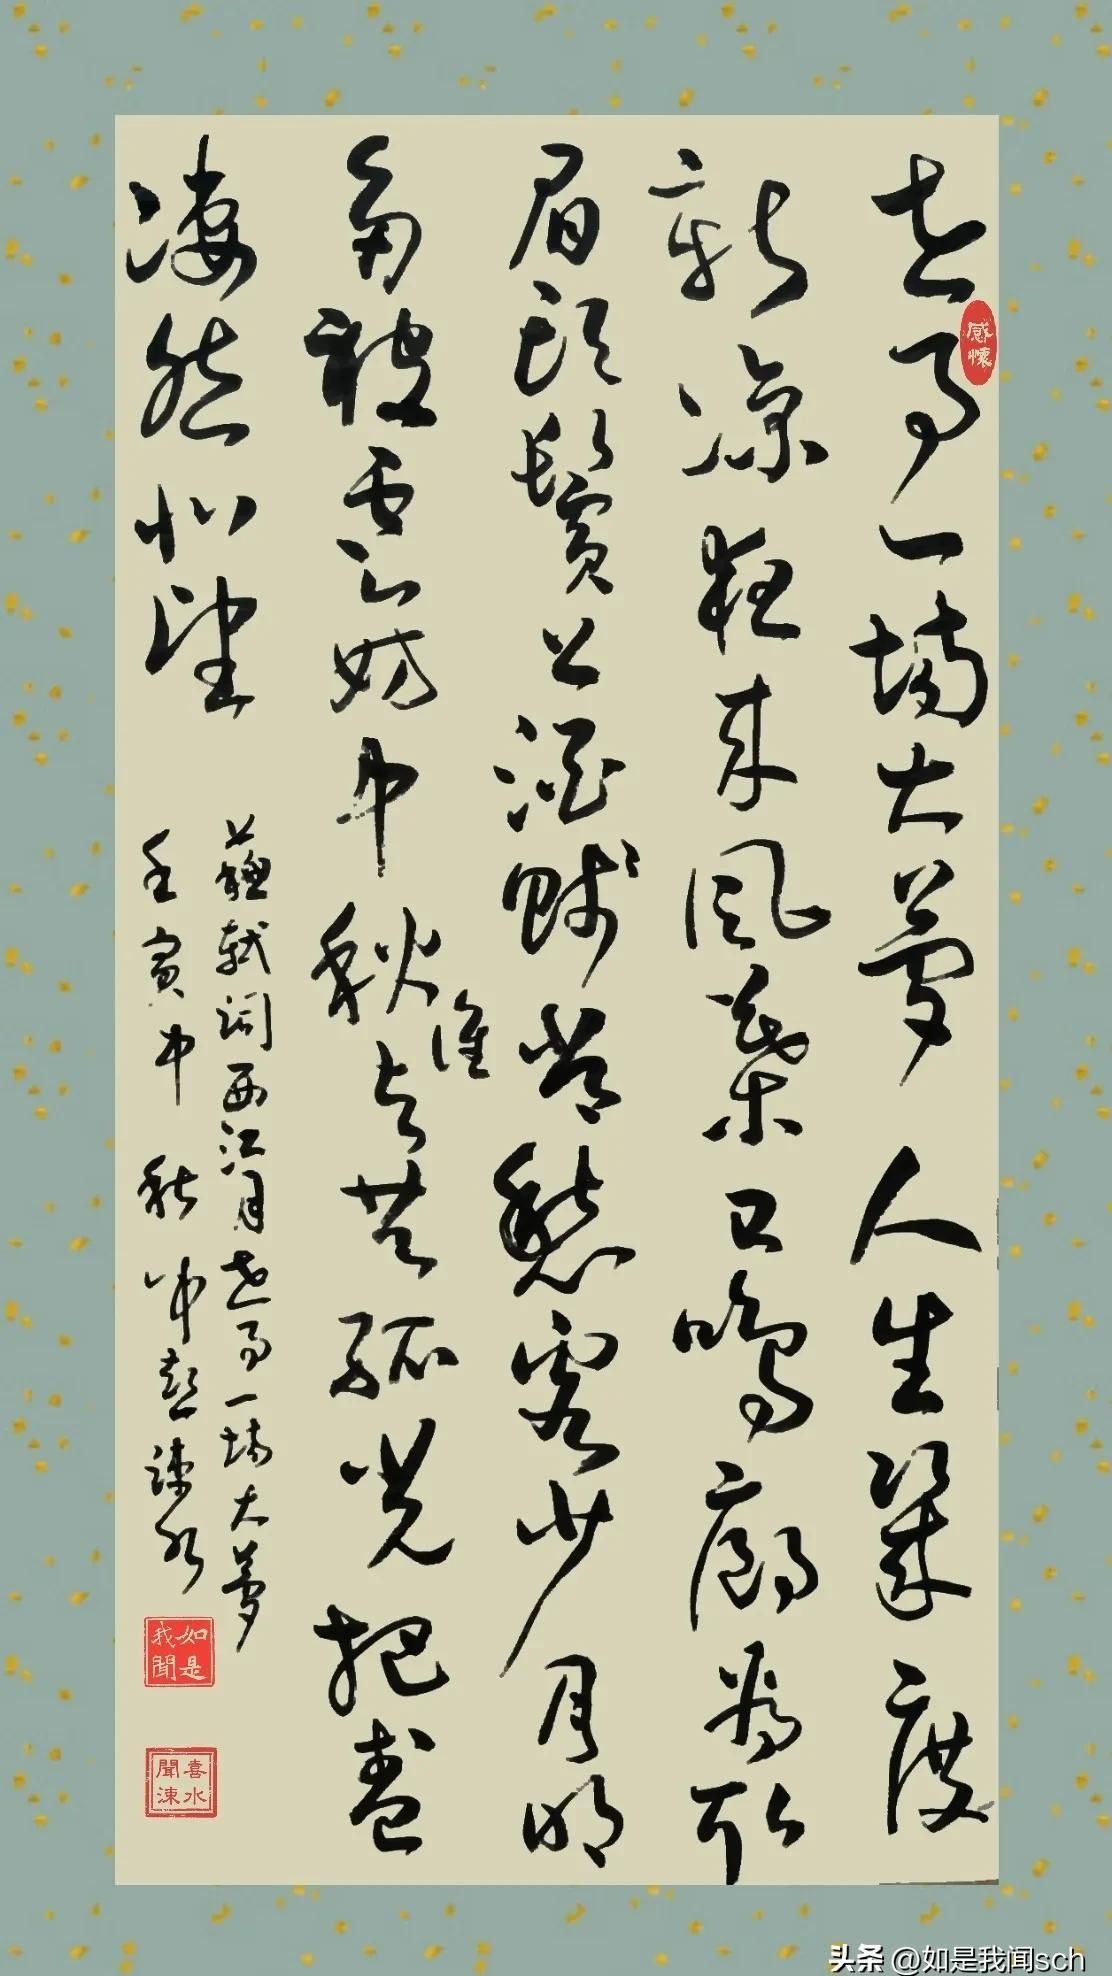 世事一場大夢人生幾度
感懷
新涼夜来風葉已鳴廊看取
眉頭鬢上酒賤常愁客少月明
多被雲妨中秋誰与共孤光把盞
淒然北望
蘇軾詞西江月世事一場大夢
壬寅中秋涑水
如是我聞
喜水聞涑
头条 @如是我闻sch